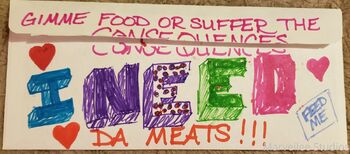 GIMME FOOD OR SUFFER THE
CONSEQUENCES
CONSEQUENCES
I NEED
FEED
ME
DA MEATS!!!